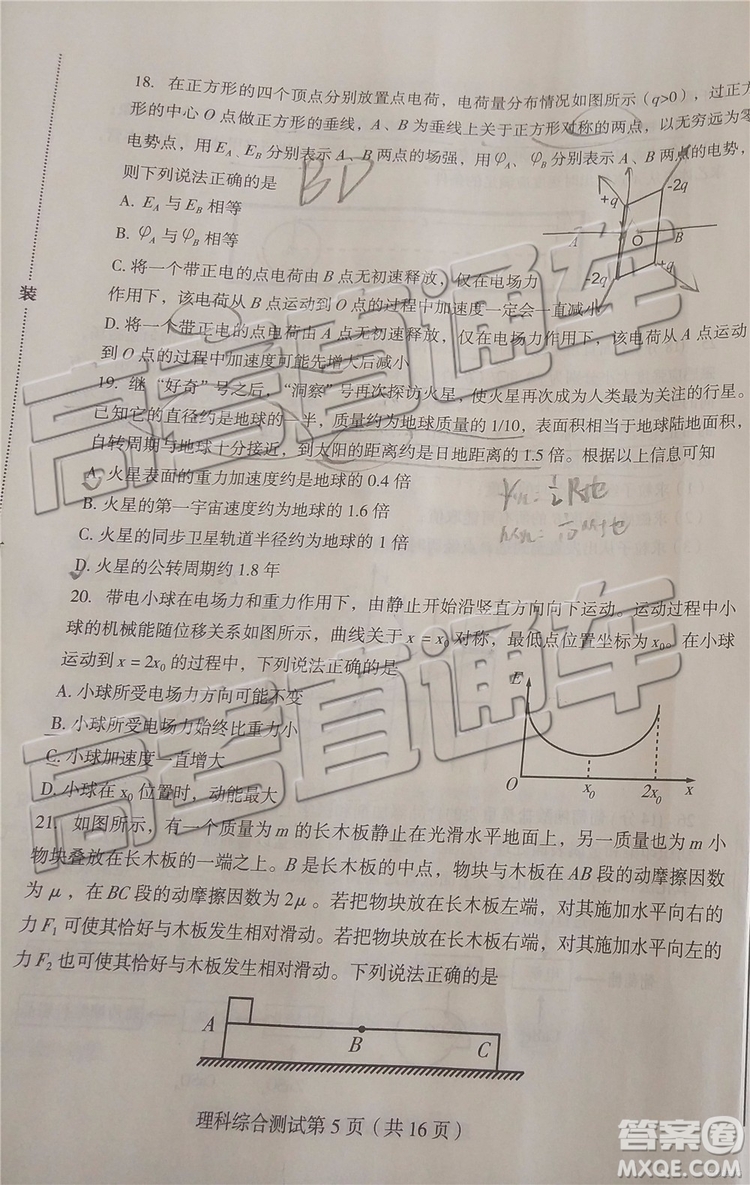 18. 在正方形的四个顶点分别放置点电荷，电荷量分布情况如图所示（q>0），过正方
形的中心 O 点做正方形的垂线，A、B 为垂线上关于正方形对称的两点，以无穷远为零
电势点，用 E_A、E_B 分别表示 A、B 两点的场强，用 φ_A、φ_B 分别表示 A、B 两点的电势，
则下列说法正确的是
BD
A. E_A 与 E_B 相等
B. φ_A 与 φ_B 相等
C. 将一个带正电的点电荷由 B 点无初速释放，仅在电场力
作用下，该电荷从 B 点运动到 O 点的过程中加速度一定会一直减小
D. 将一个带正电的点电荷由 A 点无初速释放，仅在电场力作用下，该电荷从 A 点运动
到 O 点的过程中加速度可能先增大后减小
+q
-2q
A
O
B
-2q
+q
装
19. 继“好奇”号之后，“洞察”号再次探访火星，使火星再次成为人类最为关注的行星。
已知它的直径约是地球的一半，质量约为地球质量的 1/10，表面积相当于地球陆地面积，
自转周期与地球十分接近，到太阳的距离约是日地距离的 1.5 倍。根据以上信息可知
A. 火星表面的重力加速度约是地球的 0.4 倍
B. 火星的第一宇宙速度约为地球的 1.6 倍
C. 火星的同步卫星轨道半径约为地球的 1 倍
D. 火星的公转周期约 1.8 年
20. 带电小球在电场力和重力作用下，由静止开始沿竖直方向向下运动。运动过程中小
球的机械能随位移关系如图所示，曲线关于 x = x₀ 对称，最低点位置坐标为 x₀。在小球
运动到 x = 2x₀ 的过程中，下列说法正确的是
A. 小球所受电场力方向可能不变
B. 小球所受电场力始终比重力小
C. 小球加速度一直增大
D. 小球在 x₀ 位置时，动能最大
E
O
x₀
2x₀
x
21. 如图所示，有一个质量为 m 的长木板静止在光滑水平地面上，另一质量也为 m 小
物块叠放在长木板的一端之上。B 是长木板的中点，物块与木板在 AB 段的动摩擦因数
为 μ，在 BC 段的动摩擦因数为 2μ。若把物块放在长木板左端，对其施加水平向右的
力 F₁ 可使其恰好与木板发生相对滑动。若把物块放在长木板右端，对其施加水平向左的
力 F₂ 也可使其恰好与木板发生相对滑动。下列说法正确的是
A
B
C
理科综合测试第 5 页（共 16 页）
高考直通车
高考直通车
答案圈
MXQE.COM